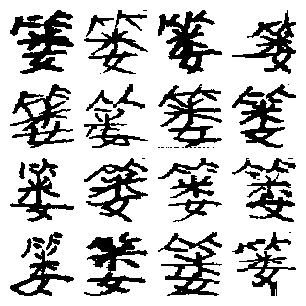 篓篓篓篓
篓篓篓篓
篓篓篓篓
篓篓篓篓